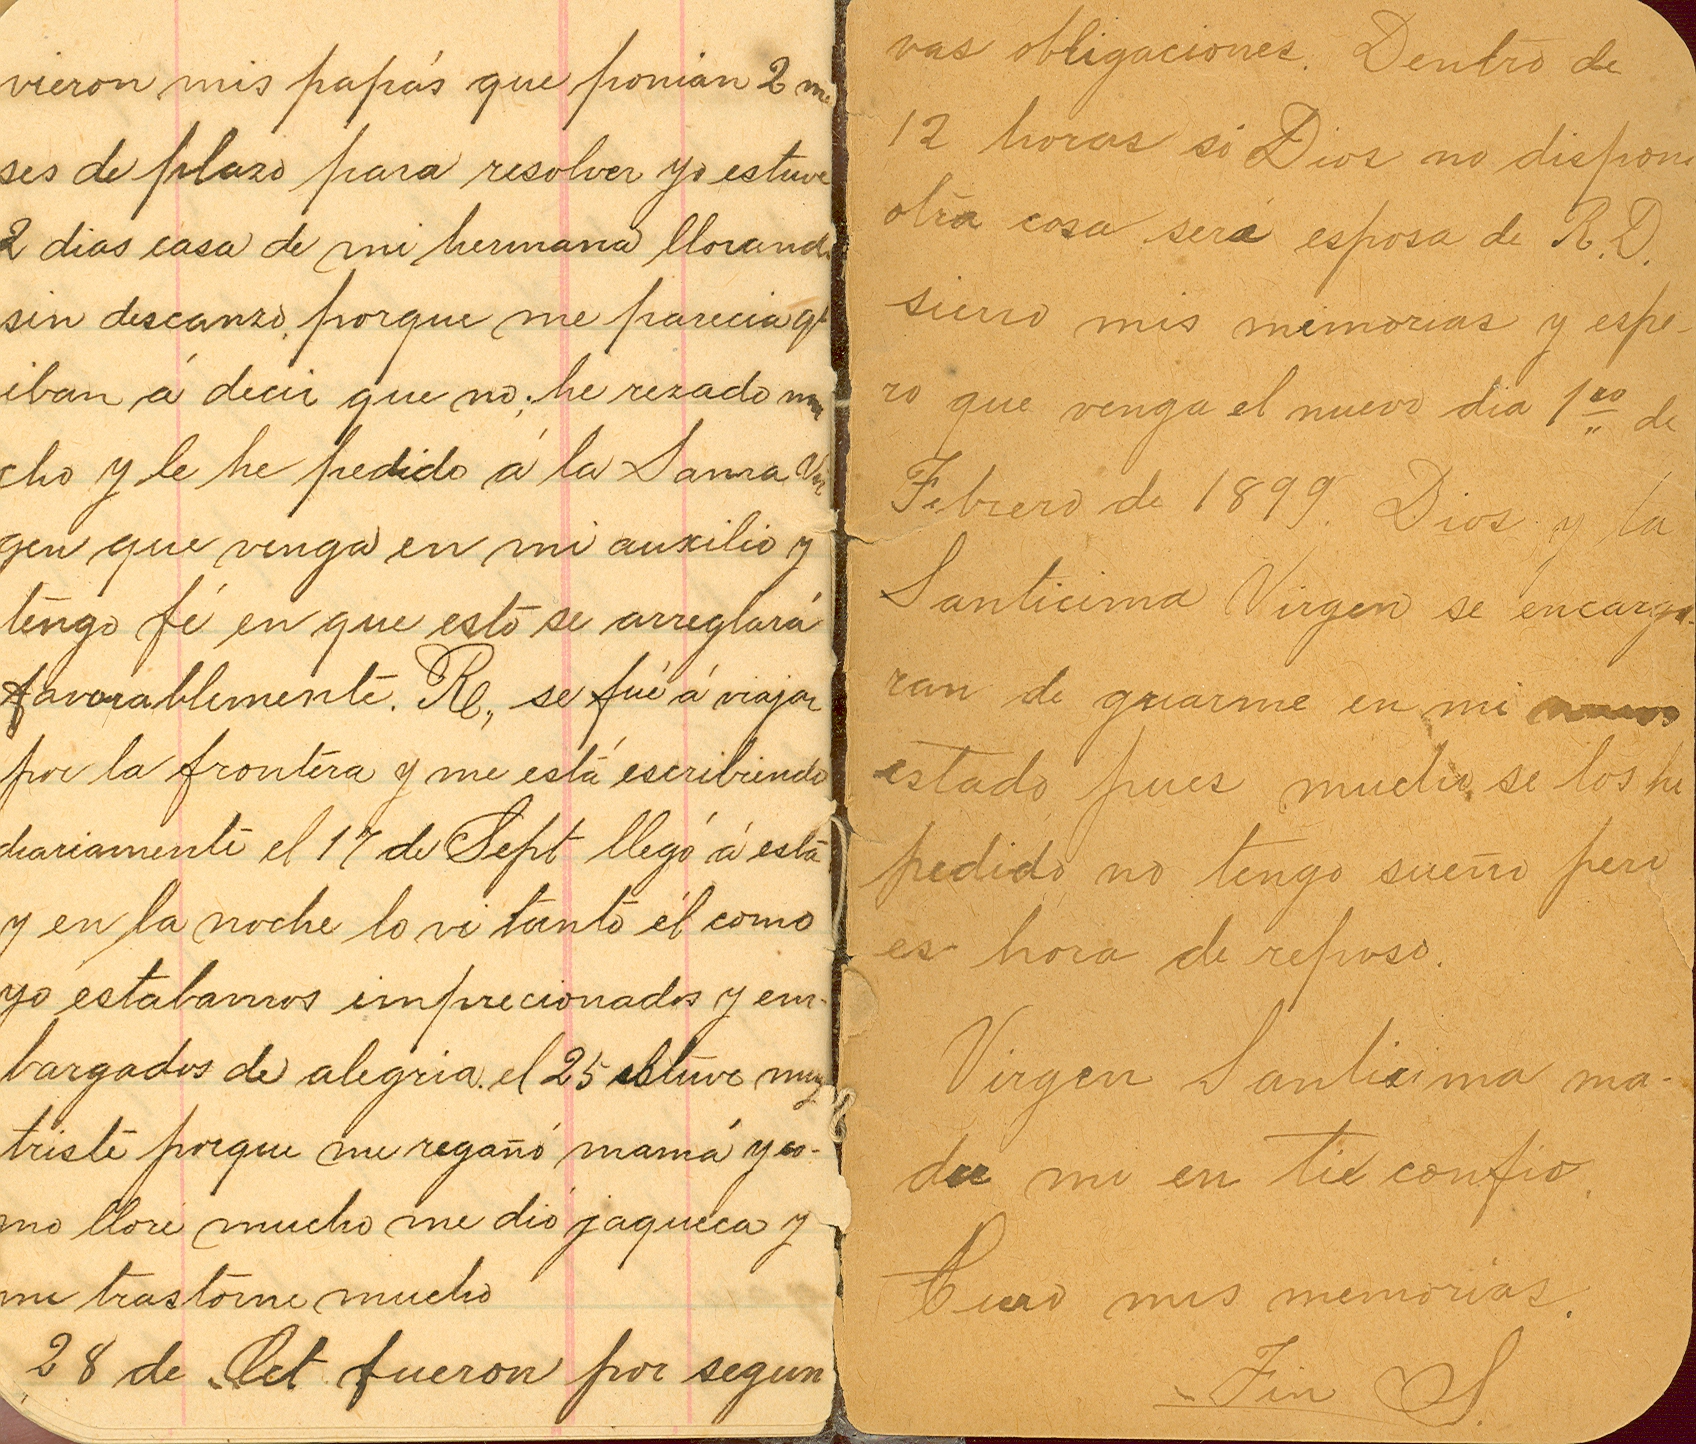 vieron mis papás que ponian 2 me
ses de plazo para resolver yo estuve
2 dias casa de mi hermana llorand
sin descanzo, porque me parecia qe
iban á decir que no; he rezado mu
cho y le he pedido á la Santa Vir
gen que venga en mi auxilio y
tengo fé en que esto se arreglará
favorablemente. Re, se fué á viajar
por la frontera y me está escribiendo
diariamente el 17 de Sept llegó á está
y en la noche lo vi tanto él como
yo estabamos imprecionados y em-
bargados de alegria. el 25 estuve muy
triste porque me regañó mamá y co-
mo lloré mucho me dió jaqueca y
me trastorne mucho
28 de Oct fueron por segun
vas obligaciones. Dentro de
12 horas si Dios no dispone
otra cosa será esposa de R.D.
sierro mis memorias y espe-
ro que venga el nuevo dia 1ro de
Febrero de 1899. Dios y la
Santicima Virgen se encarga-
ran de guiarme en mi nuevo
estado pues mucho se los he
pedido no tengo sueño pero
es hora de reposo.
Virgen Santisima ma-
dre mi en ti confio.
Cierro mis memorias.
Fin S.